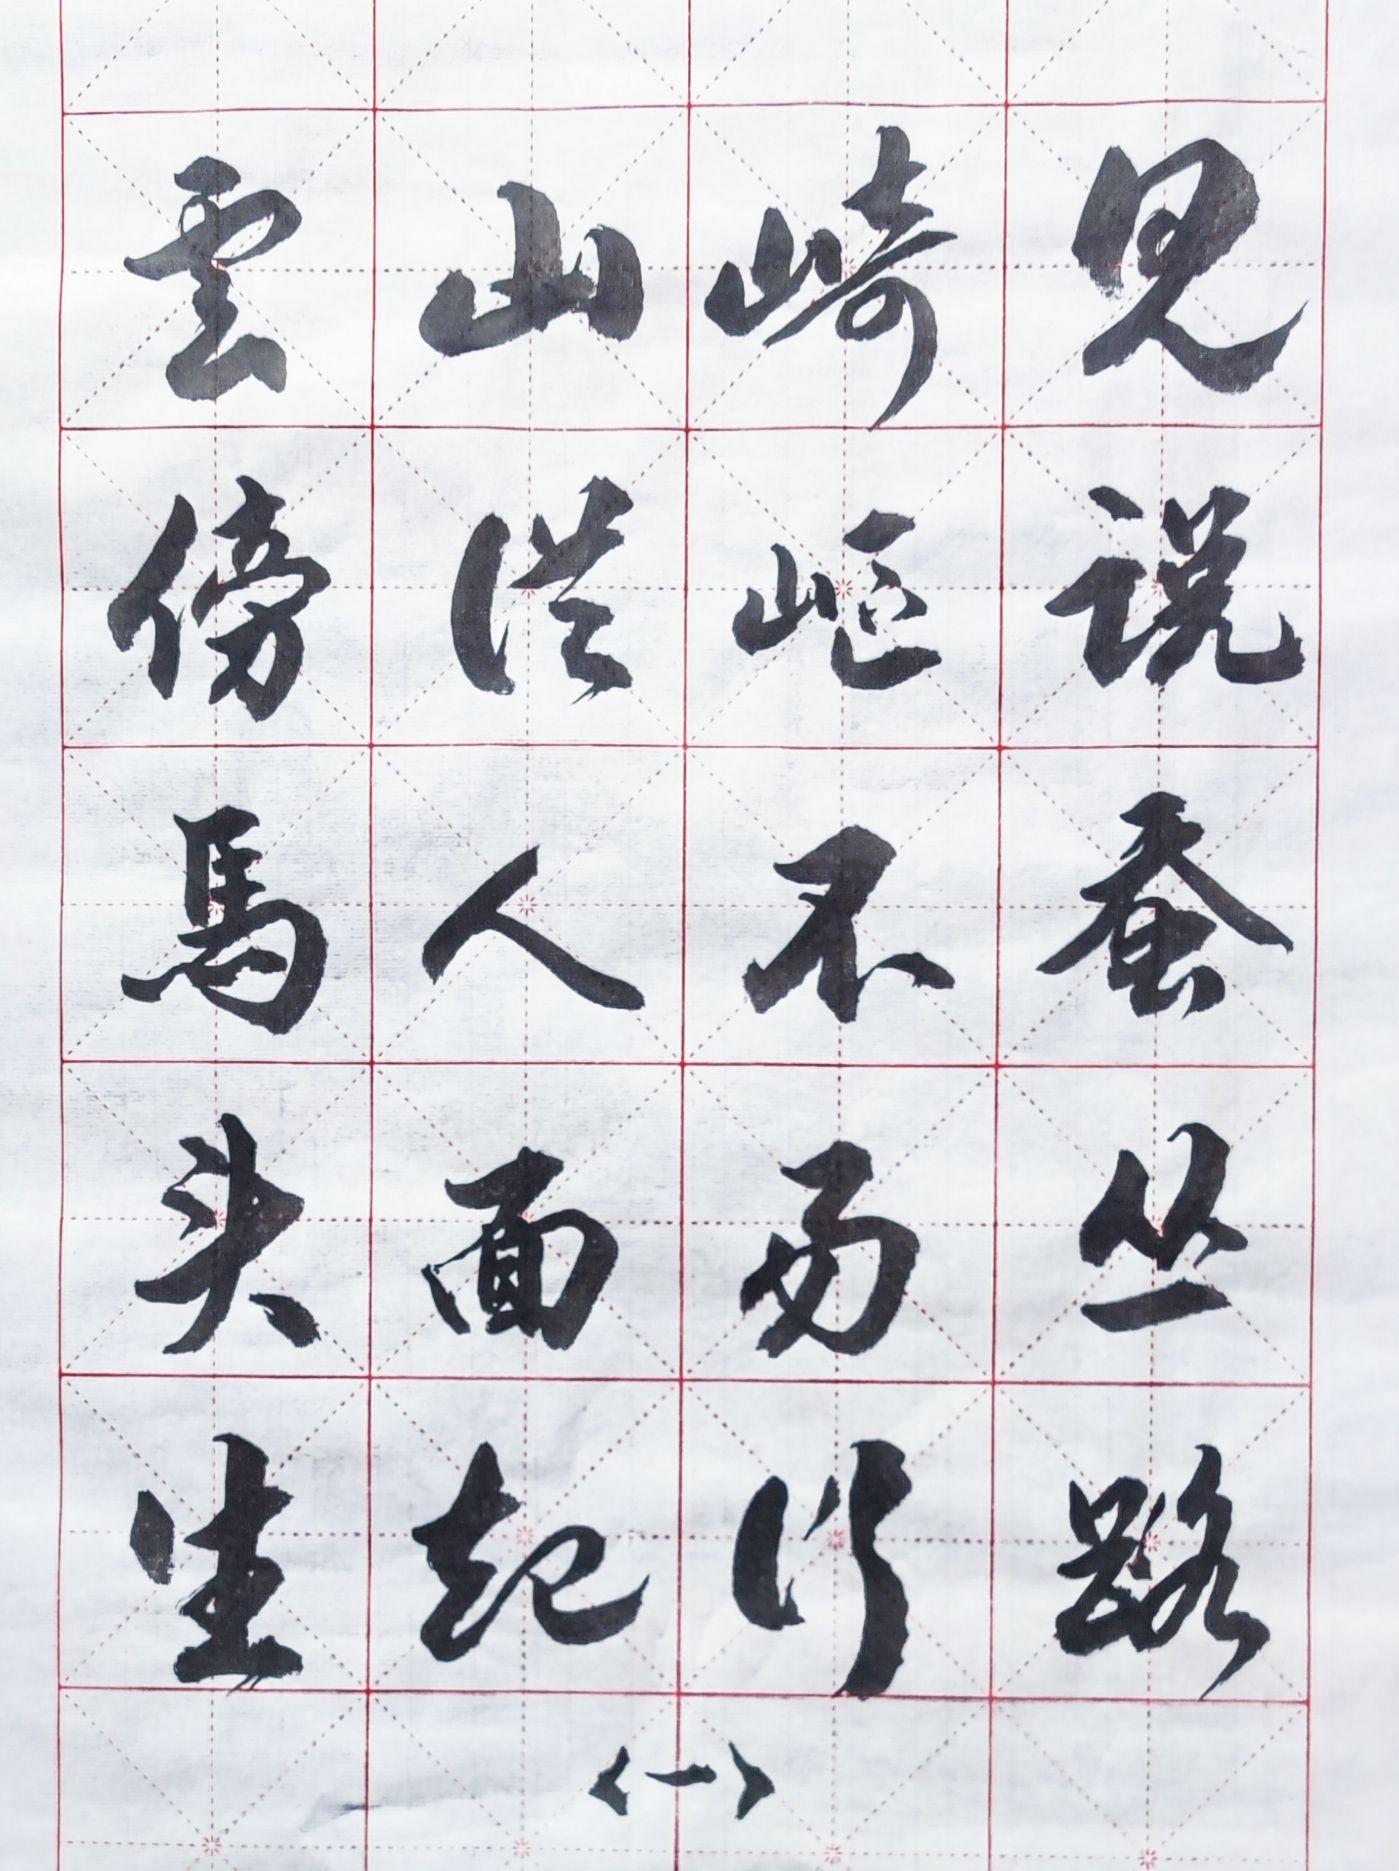 见说蚕丛路
崎岖不易行
山从人面起
雲傍馬头生
〈一〉